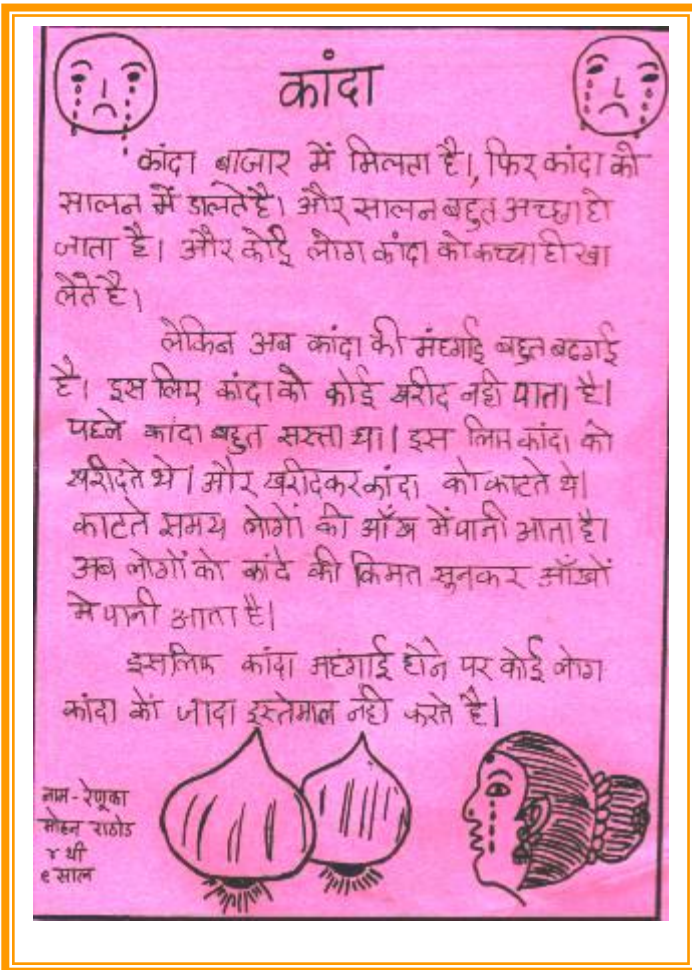 कांदा
कांदा बाजार में मिलता है। फिर कांदा को
सालन में डालते है। और सालन बहुत अच्छा हो
जाता है। और कोई लोग कांदा को कच्चा ही खा
लेते है।
लेकिन अब कांदा की मंहगाई बहुत बढगई
है। इस लिए कांदा को कोई खरीद नही पाता है।
पहले कांदा बहुत सस्ता था। इस लिए कांदा को
खरीदते थे। और खरीदकर कांदा को काटते थे।
काटते समय लोगों की आँख में पानी आता है।
अब लोगों को कांदे की किमत सुनकर आँखों
मे पानी आता है।
इसलिए कांदा महंगाई होने पर कोई लोग
कांदा को जादा इस्तेमाल नही करते है।
नाम - रेणूका
मोहन राठोड
४ थी
९ साल